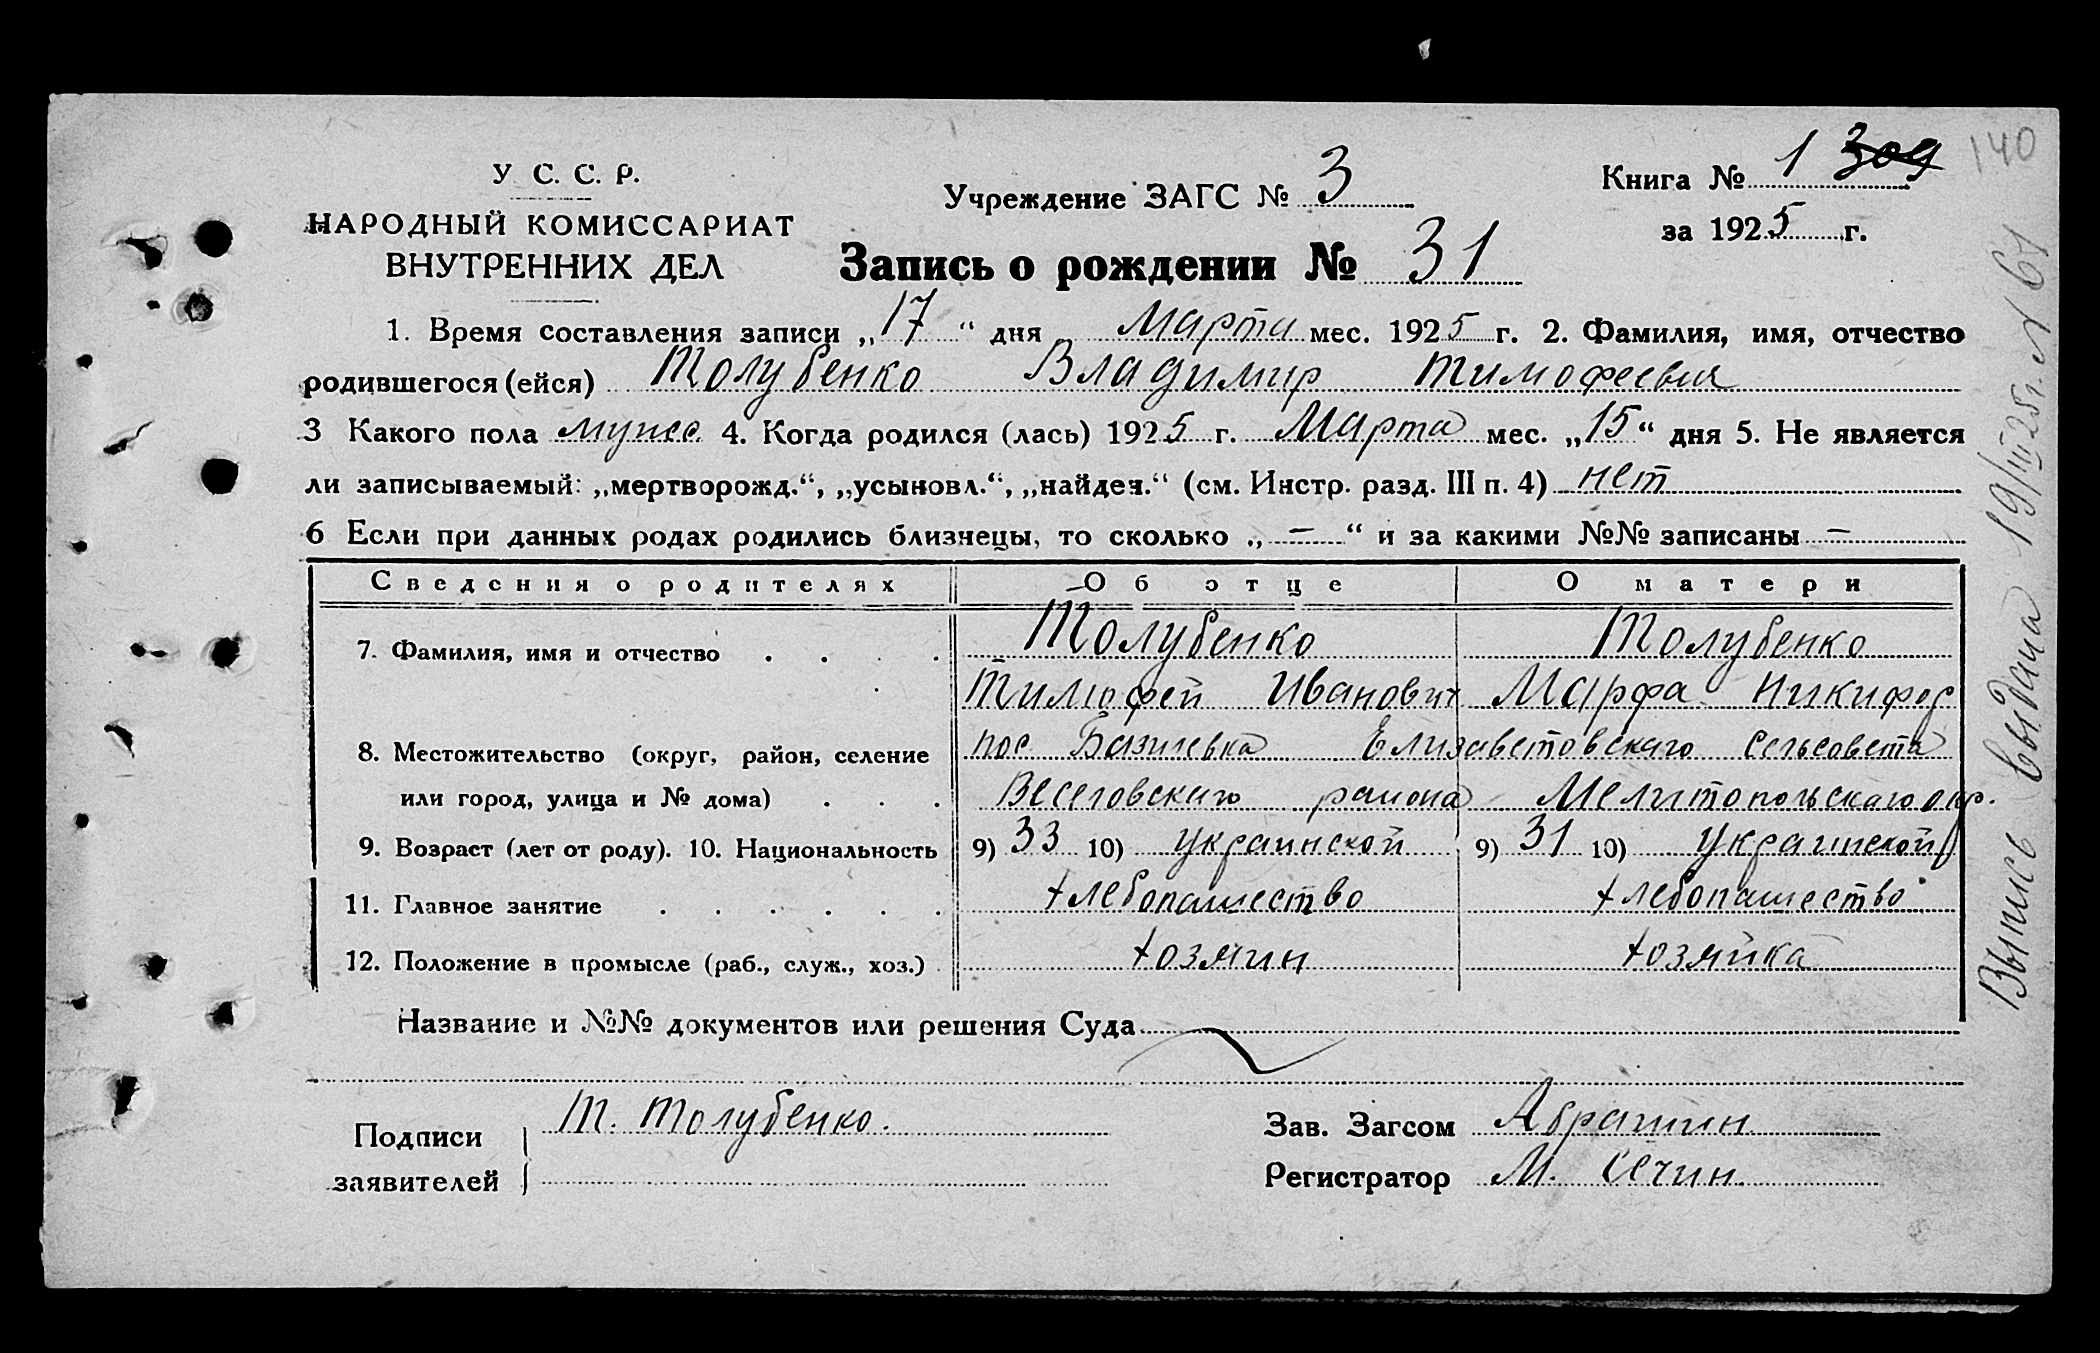 У. С. С. Р.
НАРОДНЫЙ КОМИССАРИАТ
ВНУТРЕННИХ ДЕЛ
Учреждение ЗАГС № 3
Книга № 1 309 140
за 1925 г.
Запись о рождении № 31
1. Время составления записи „17“ дня Марта мес. 1925 г. 2. Фамилия, имя, отчество
родившегося (ейся) Толубенко Владимир Тимофеевич
3 Какого пола мужс. 4. Когда родился (лась) 1925 г. Марта мес. „15“ дня 5. Не является
ли записываемый: „мертворожд.“, „усыновл.“, „найден.“ (см. Инстр. разд. III п. 4) нет
6 Если при данных родах родились близнецы, то сколько „ — “ и за какими №№ записаны —
Сведения о родителях Об отце О матери
7. Фамилия, имя и отчество Толубенко Толубенко
Тимофей Иванович Марфа Никифор
8. Местожительство (округ, район, селение пос. Елизаветовскаго сельсовета
или город, улица и № дома) Веселовскаго района Мелитопольскаго окр.
9. Возраст (лет от роду). 10. Национальность 9) 33 10) украинской 9) 31 10) украинской
11. Главное занятие хлебопашество хлебопашество
12. Положение в промысле (раб., служ., хоз.) хозяин хозяйка
Название и №№ документов или решения Суда
Подписи Т. Толубенко.
заявителей
Зав. Загсом Абрашин
Регистратор М.
Выпись выдана 19/III 25г. № 61